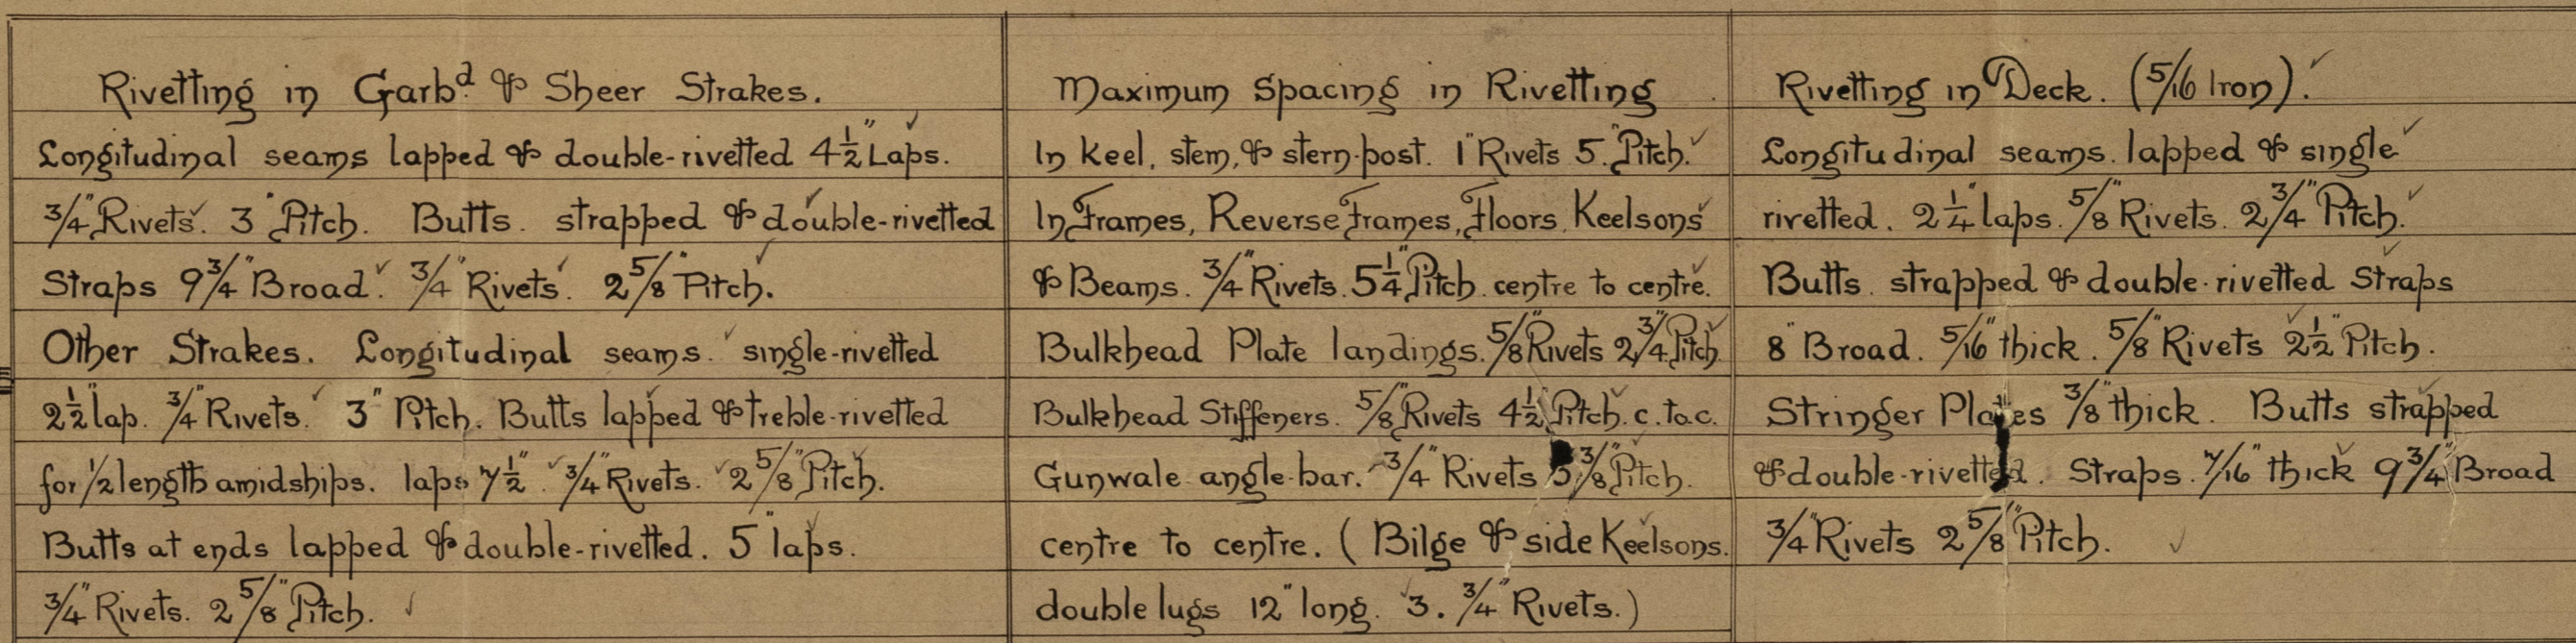 Rivetting in Garbd. & Sheer Strakes.
Longitudinal seams lapped & double-rivetted 4 1/2" Laps.
3/4" Rivets. 3" Pitch. Butts. strapped & double-rivetted
Straps 9 3/4" Broad. 3/4" Rivets. 2 5/8" Pitch.
Other Strakes. Longitudinal seams. single-rivetted
2 1/2" lap. 3/4" Rivets. 3" Pitch. Butts lapped & treble-rivetted
for 1/2 length amidships. laps 7 1/2". 3/4" Rivets. 2 5/8" Pitch.
Butts at ends lapped & double-rivetted. 5" laps.
3/4" Rivets. 2 5/8" Pitch.
Maximum Spacing in Rivetting
In Keel, stem, & stern-post. 1" Rivets 5" Pitch.
In Frames, Reverse Frames, Floors, Keelsons
& Beams. 3/4" Rivets. 5 1/4" Pitch. centre to centre.
Bulkhead Plate landings. 5/8" Rivets 2 3/4" Pitch
Bulkhead Stiffeners. 5/8" Rivets 4 1/2" Pitch. c. to c.
Gunwale angle-bar. 3/4" Rivets 3/8" Pitch.
centre to centre. (Bilge & side Keelsons.
double lugs 12" long. 3. 3/4" Rivets.)
Rivetting in Deck. (5/16 Iron).
Longitudinal seams. lapped & single
rivetted. 2 1/4" laps. 5/8" Rivets. 2 3/4" Pitch.
Butts. strapped & double-rivetted Straps
8" Broad. 5/16" thick. 5/8" Rivets 2 1/2" Pitch.
Stringer Plates 3/8" thick. Butts strapped
& double-rivetted. Straps. 7/16" thick 9 3/4" Broad
3/4" Rivets 2 5/8" Pitch.